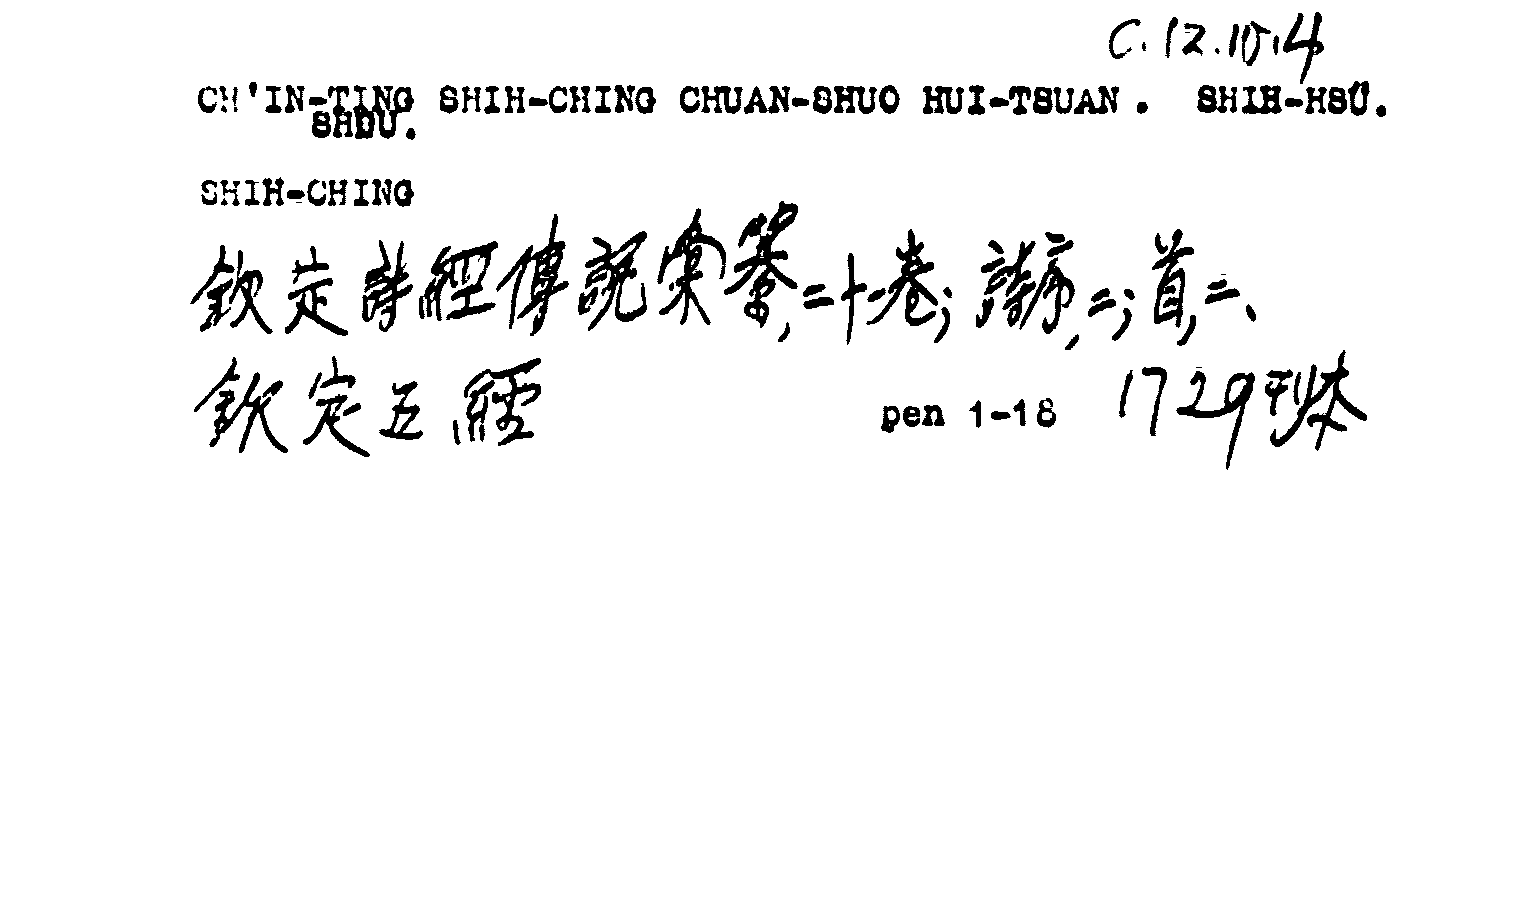 C.12.15.4
CH'IN-TING SHIH-CHING CHUAN-SHUO HUI-TSUAN. SHIH-HSÜ.
SHOU.
SHIH-CHING
欽定詩經傳說彙纂,二十一卷;詩序,二;首,二、
欽定五經 pen 1-18 1729刊本